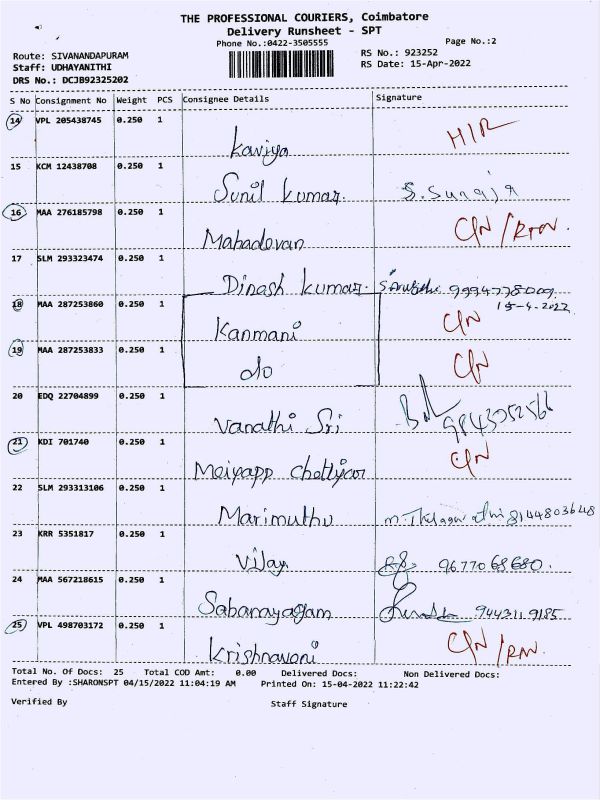 THE PROFESSIONAL COURIERS, Coimbatore
Delivery Runsheet - SPT
Phone No.:0422-3505555
Page No.:2
Route: SIVANANDAPURAM
RS No.: 923252
Staff: UDHAYANITHI
RS Date: 15-Apr-2022
DRS No.: DCJB92325202
S No Consignment No Weight PCS Consignee Details Signature
14 VPL 205438745 0.250 1
Kaviya
15 KCM 12438708 0.250 1
Sunil Kumar. S.Sunaja
16 MAA 276185798 0.250 1 C/N /RTN.
Mahadevan
17 SLM 293323474 0.250 1
Dinash Kumar. 9994778009
15-4-2022
18 MAA 287253860 0.250 1
Kanmani C/N
19 MAA 287253833 0.250 1
do C/N
20 EDQ 22704899 0.250 1
Vanathi Sri
21 KDI 701740 0.250 1 C/N
Meiyapp Chettiyar
22 SLM 293313106 0.250 1
Marimuthu 8144803648
23 KRR 5351817 0.250 1
Vijay 9677068680.
24 MAA 567218615 0.250 1
Sabanayagam 9443119185
25 VPL 498703172 0.250 1 C/N /RTN.
Krishnavani
Total No. Of Docs: 25 Total COD Amt: 0.00 Delivered Docs: Non Delivered Docs:
Entered By :SHARONSPT 04/15/2022 11:04:19 AM Printed On: 15-04-2022 11:22:42
Verified By Staff Signature